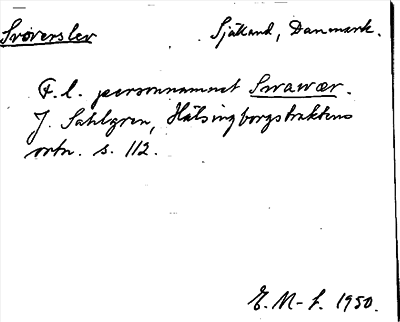 Svöverslev Själland, Danmark.
F.l. personnamnet Swawær.
J. Sahlgren, Hälsingborgstraktens
ortn. s. 112.
E. M-f. 1950.